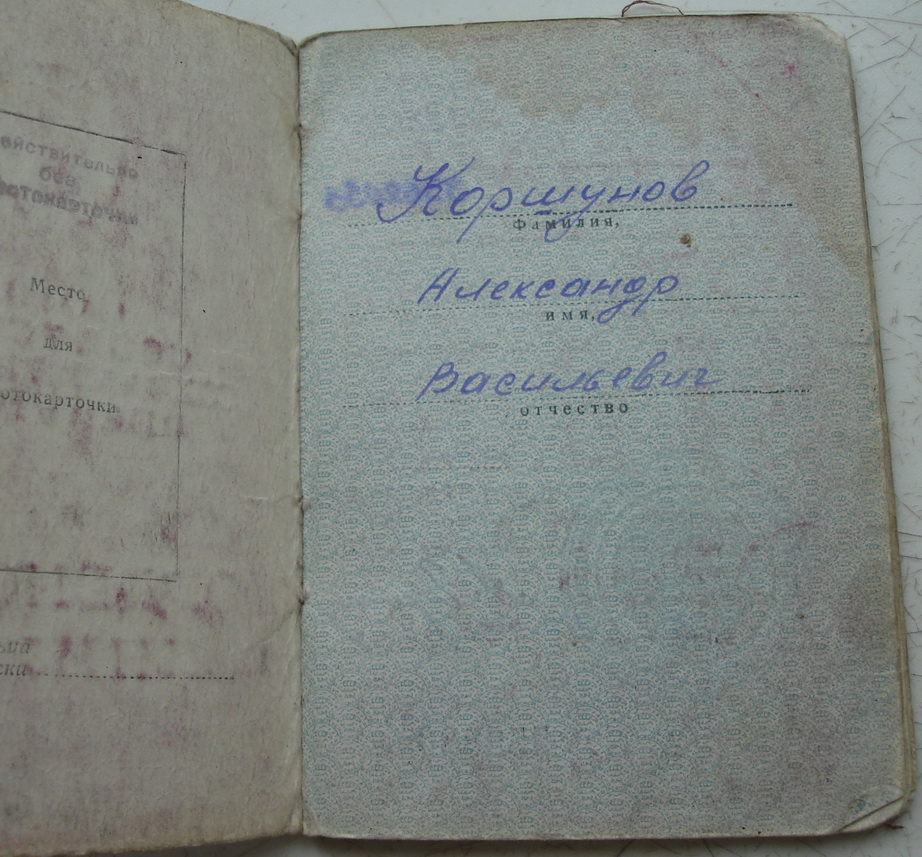 ействительно
без
Место
для
отокарточки
ьца
ски
Коршунов
Фамилия,
Александр
имя,
Васильевич
отчество